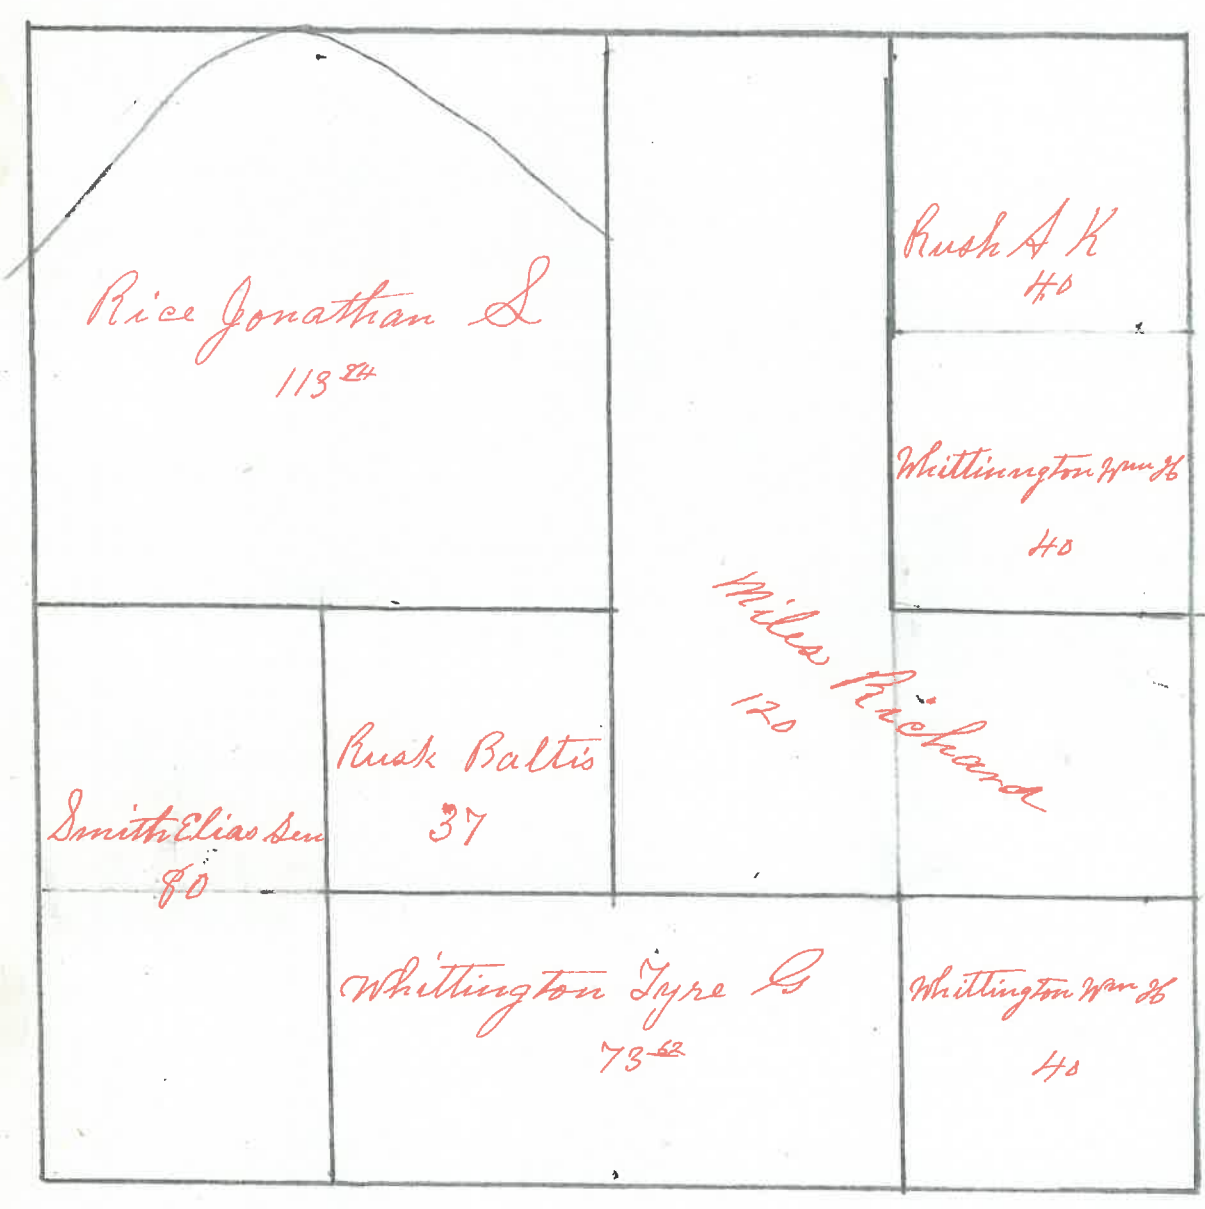 Rush A K
40
Rice Jonathan S
113 24
Whittinngton Wm H
40
Miles Richard
120
Rusk Baltis
37
Smith Elias Sen
80
Whittington Tyre G
73 62
Whittington Wm H
40